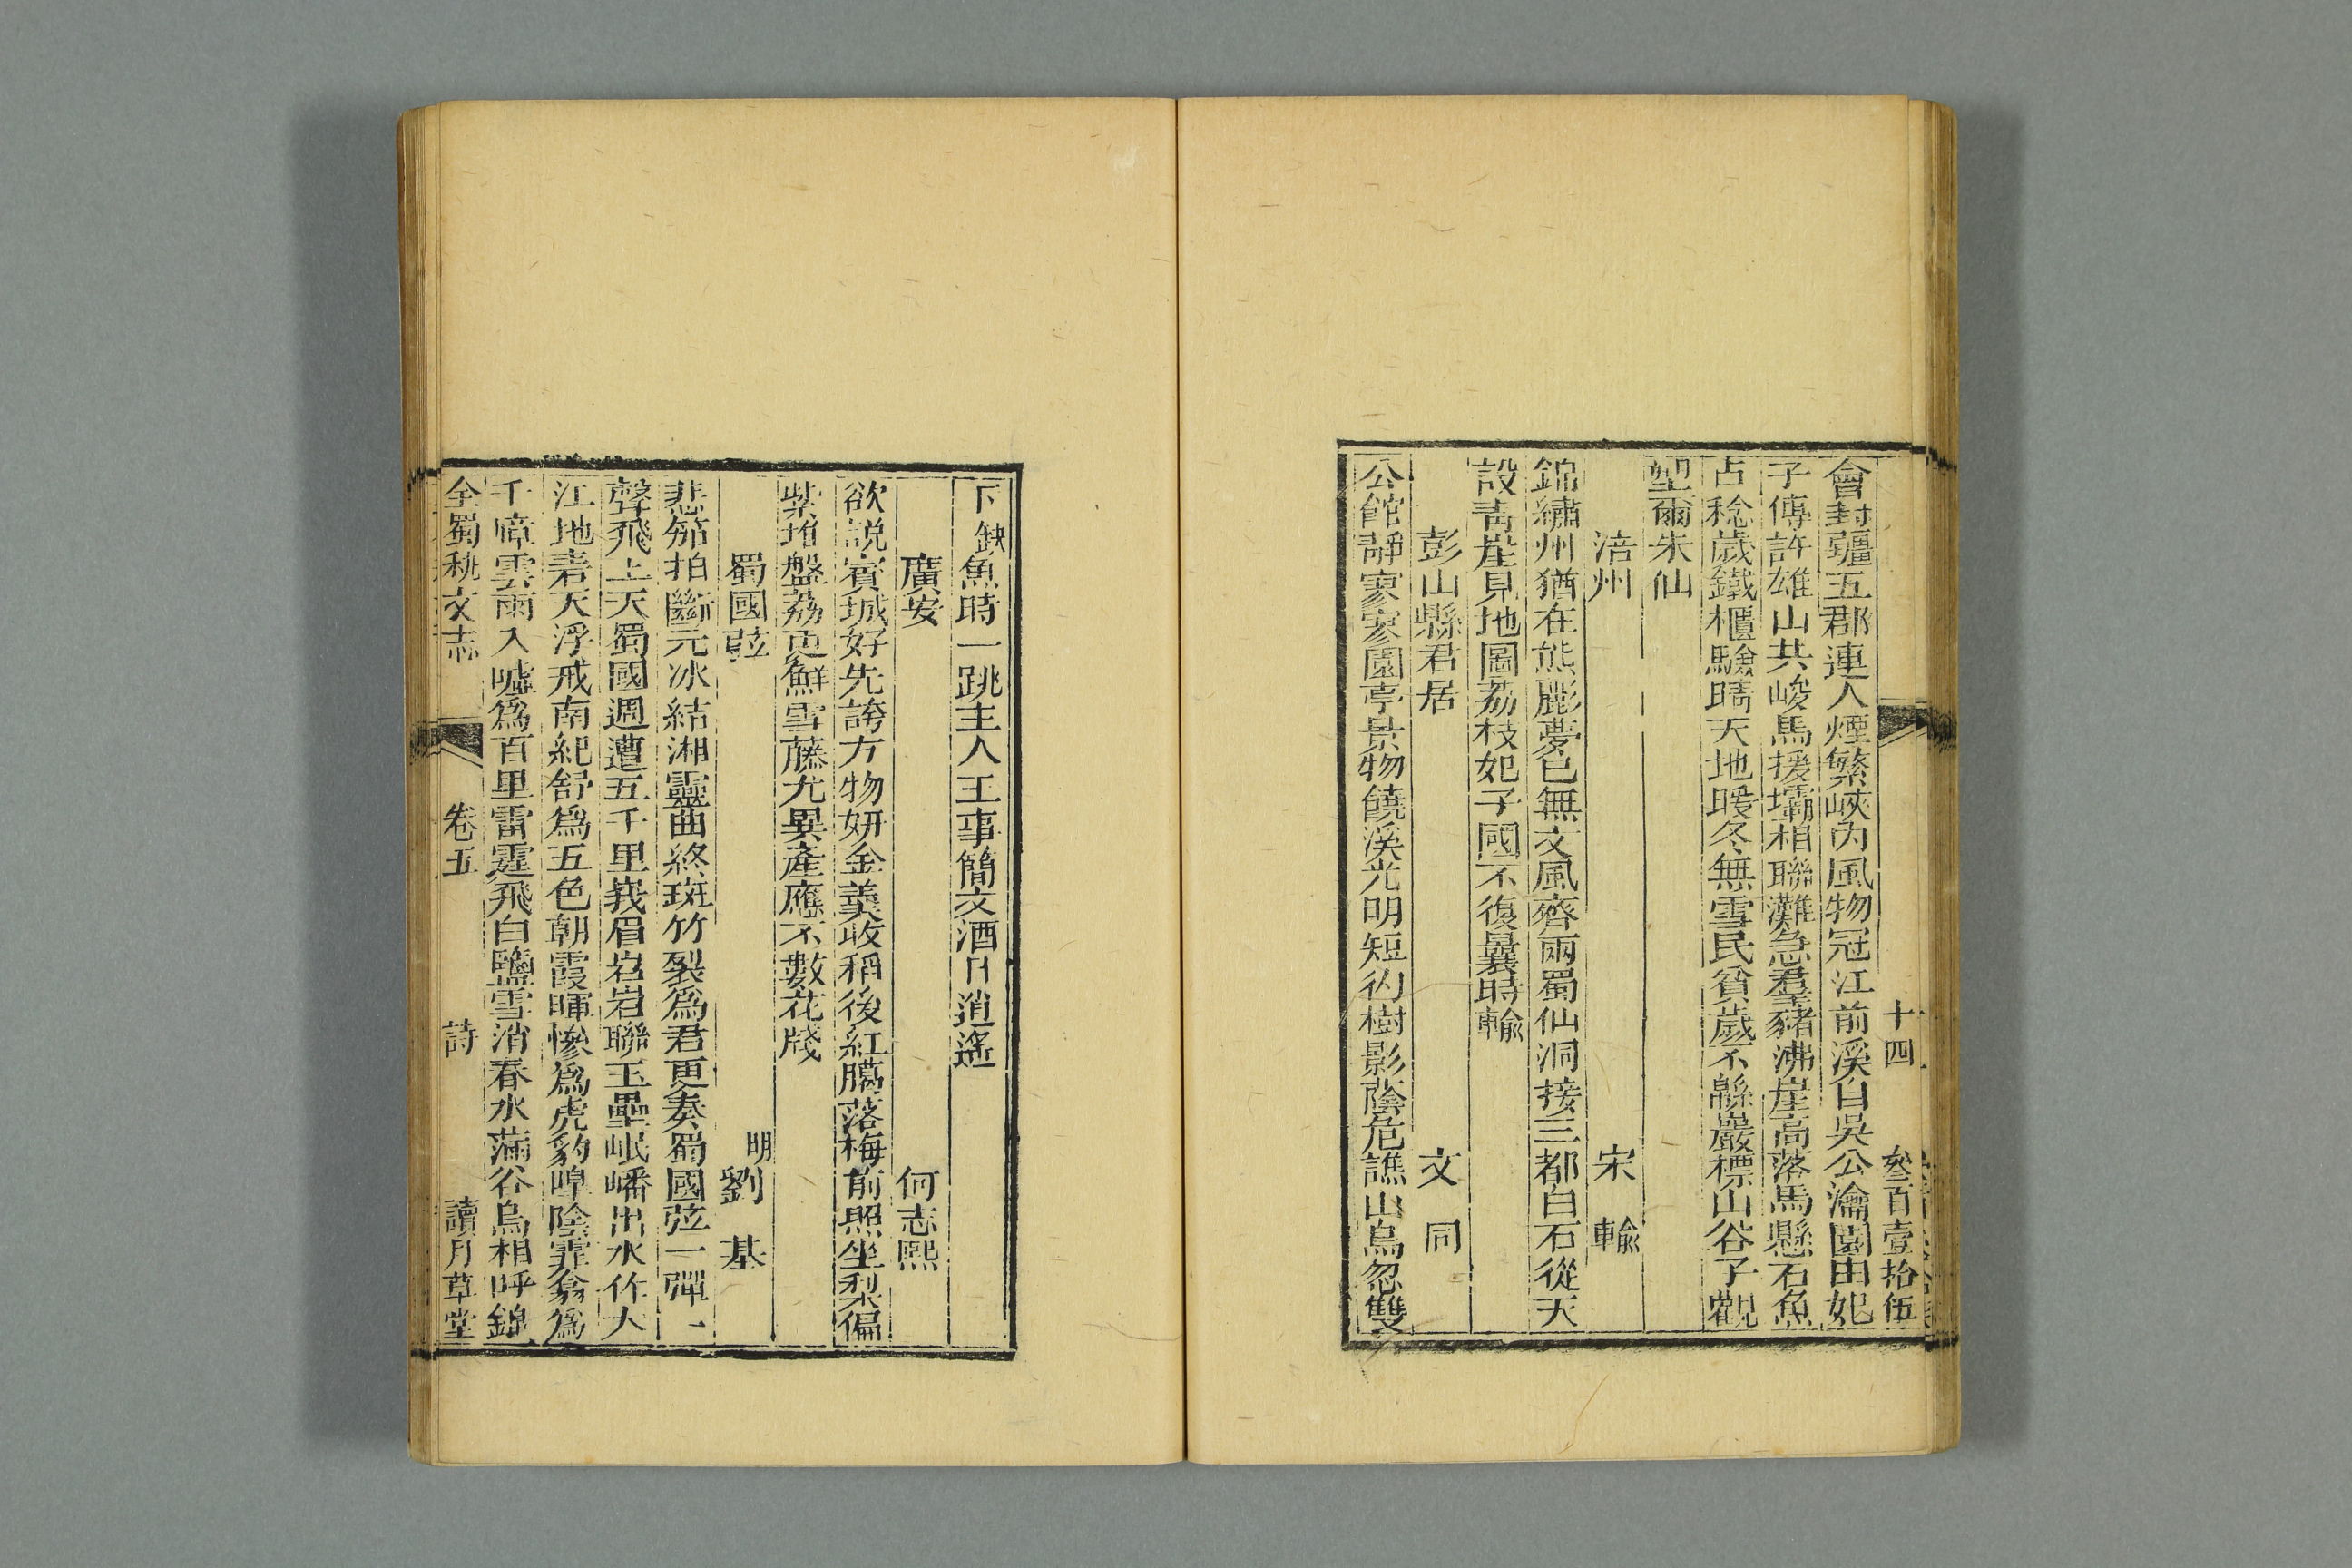 十四 叁百壹拾伍
會封疆五郡連人煙繁峽內風物冠江前溪自吳公瀹園由妃
子傳許雄山共峻馬援壩相聯灘急羣豬沸崖高落馬懸石魚
占稔歲鐵櫃驗晴天地暖冬無雪民貧歲不緜巖標山谷子觀
塑爾朱仙
涪州 宋輸
錦繡州猶在熊彪夢已無文風齊兩蜀仙洞接三都白石從天
設靑崖見地圖荔枝妃子國不復曩時輸
彭山縣君居 文同
公館靜寥寥園亭景物饒溪光明短彴樹影蔭危譙山鳥忽雙
下缺魚時一跳主人王事簡文酒日逍遙
廣安 何志熙
欲說賓城好先誇方物妍金羹收稻後紅臈落梅前照坐梨偏
紫堆盤荔更鮮雪藤尤異產應不數花牋
蜀國弦 明劉基
悲笳拍斷元冰結湘靈曲終斑竹裂爲君更奏蜀國弦一彈一
聲飛上天蜀國週遭五千里峩眉岧岧聯玉壘岷嶓出水作大
江地砉天浮戒南紀舒爲五色朝霞暉慘爲虎豹嘷陰霏翕爲
千嶂雲雨入噓爲百里雷霆飛白鹽雪消春水滿谷鳥相呼錦
全蜀秇文志 卷五 詩 讀月草堂